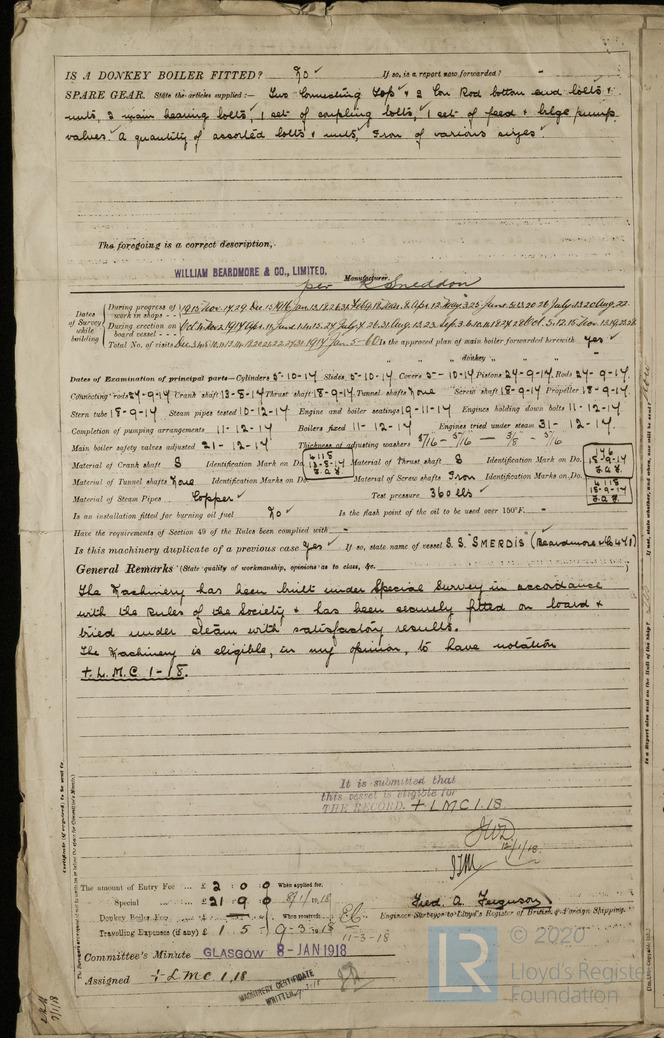 IS A DONKEY BOILER FITTED? No ✓ If so, is a report now forwarded? "
SPARE GEAR. State the articles supplied:— Two Connecting Top & 2 Con Rod bottom end bolts &
nuts, 2 main bearing bolts, 1 set of coupling bolts, 1 set of feed & bilge pump
valves. A quantity of assorted bolts & nuts, Iron of various sizes ✓
The foregoing is a correct description,
WILLIAM BEARDMORE & CO., LIMITED. Manufacturer.
per R Sneddon
Dates of Survey while building
During progress of work in shops - -
During erection on board vessel - - -
Total No. of visits 60 Is the approved plan of main boiler forwarded herewith Yes ✓
" " " donkey " "
Dates of Examination of principal parts—Cylinders 5-10-17 Slides 5-10-17 Covers 5-10-17 Pistons 27-9-17 Rods 27-9-17
Connecting rods 27-9-17 Crank shaft 13-8-17 Thrust shaft 18-9-17 Tunnel shafts None Screw shaft 18-9-17 Propeller 18-9-17
Stern tube 18-9-17 Steam pipes tested 10-12-17 Engine and boiler seatings 19-11-17 Engines holding down bolts 11-12-17
Completion of pumping arrangements 11-12-17 Boilers fixed 11-12-17 Engines tried under steam 31-12-17
Main boiler safety valves adjusted 21-12-17 Thickness of adjusting washers 5/16 - 5/16 - 3/8 - 5/16
Material of Crank shaft S Identification Mark on Do. 6118 13-8-17 F.A.F. Material of Thrust shaft S Identification Mark on Do. 18-9-17 F.A.F.
Material of Tunnel shafts None Identification Marks on Do. Material of Screw shafts Iron ✓ Identification Marks on Do. 6118 18-9-17 F.A.F.
Material of Steam Pipes Copper ✓ Test pressure 360 lbs ✓
Is an installation fitted for burning oil fuel No ✓ Is the flash point of the oil to be used over 150°F. -
Have the requirements of Section 49 of the Rules been complied with -
Is this machinery duplicate of a previous case Yes ✓ If so, state name of vessel S.S. "SMERDIS" (Beardmore No 471)
General Remarks (State quality of workmanship, opinions as to class, &c.
The Machinery has been built under Special Survey in accordance
with the Rules of the Society & has been securely fitted on board &
tried under steam with satisfactory results.
The Machinery is eligible, in my opinion, to have notation
+ L.M.C 1-18.
It is submitted that
this vessel is eligible for
THE RECORD. + LMC 1.18
JWD
12/1/18.
The amount of Entry Fee ... £ 2 : 0 : 0 When applied for,
Special ... £ 21 : 9 : 0 8/1/1918
Donkey Boiler Fee ... £ When received,
Travelling Expenses (if any) £ 1 : 5 : - 9-3-1918
11-3-18
Fred. A. Ferguson
Engineer Surveyor to Lloyd's Register of British & Foreign Shipping.
Committee's Minute GLASGOW 8-JAN 1918
Assigned + LMC 1.18
MACHINERY CERTIFICATE
WRITTEN
9/1/18
© 2020
LR
Lloyd's Register
Foundation